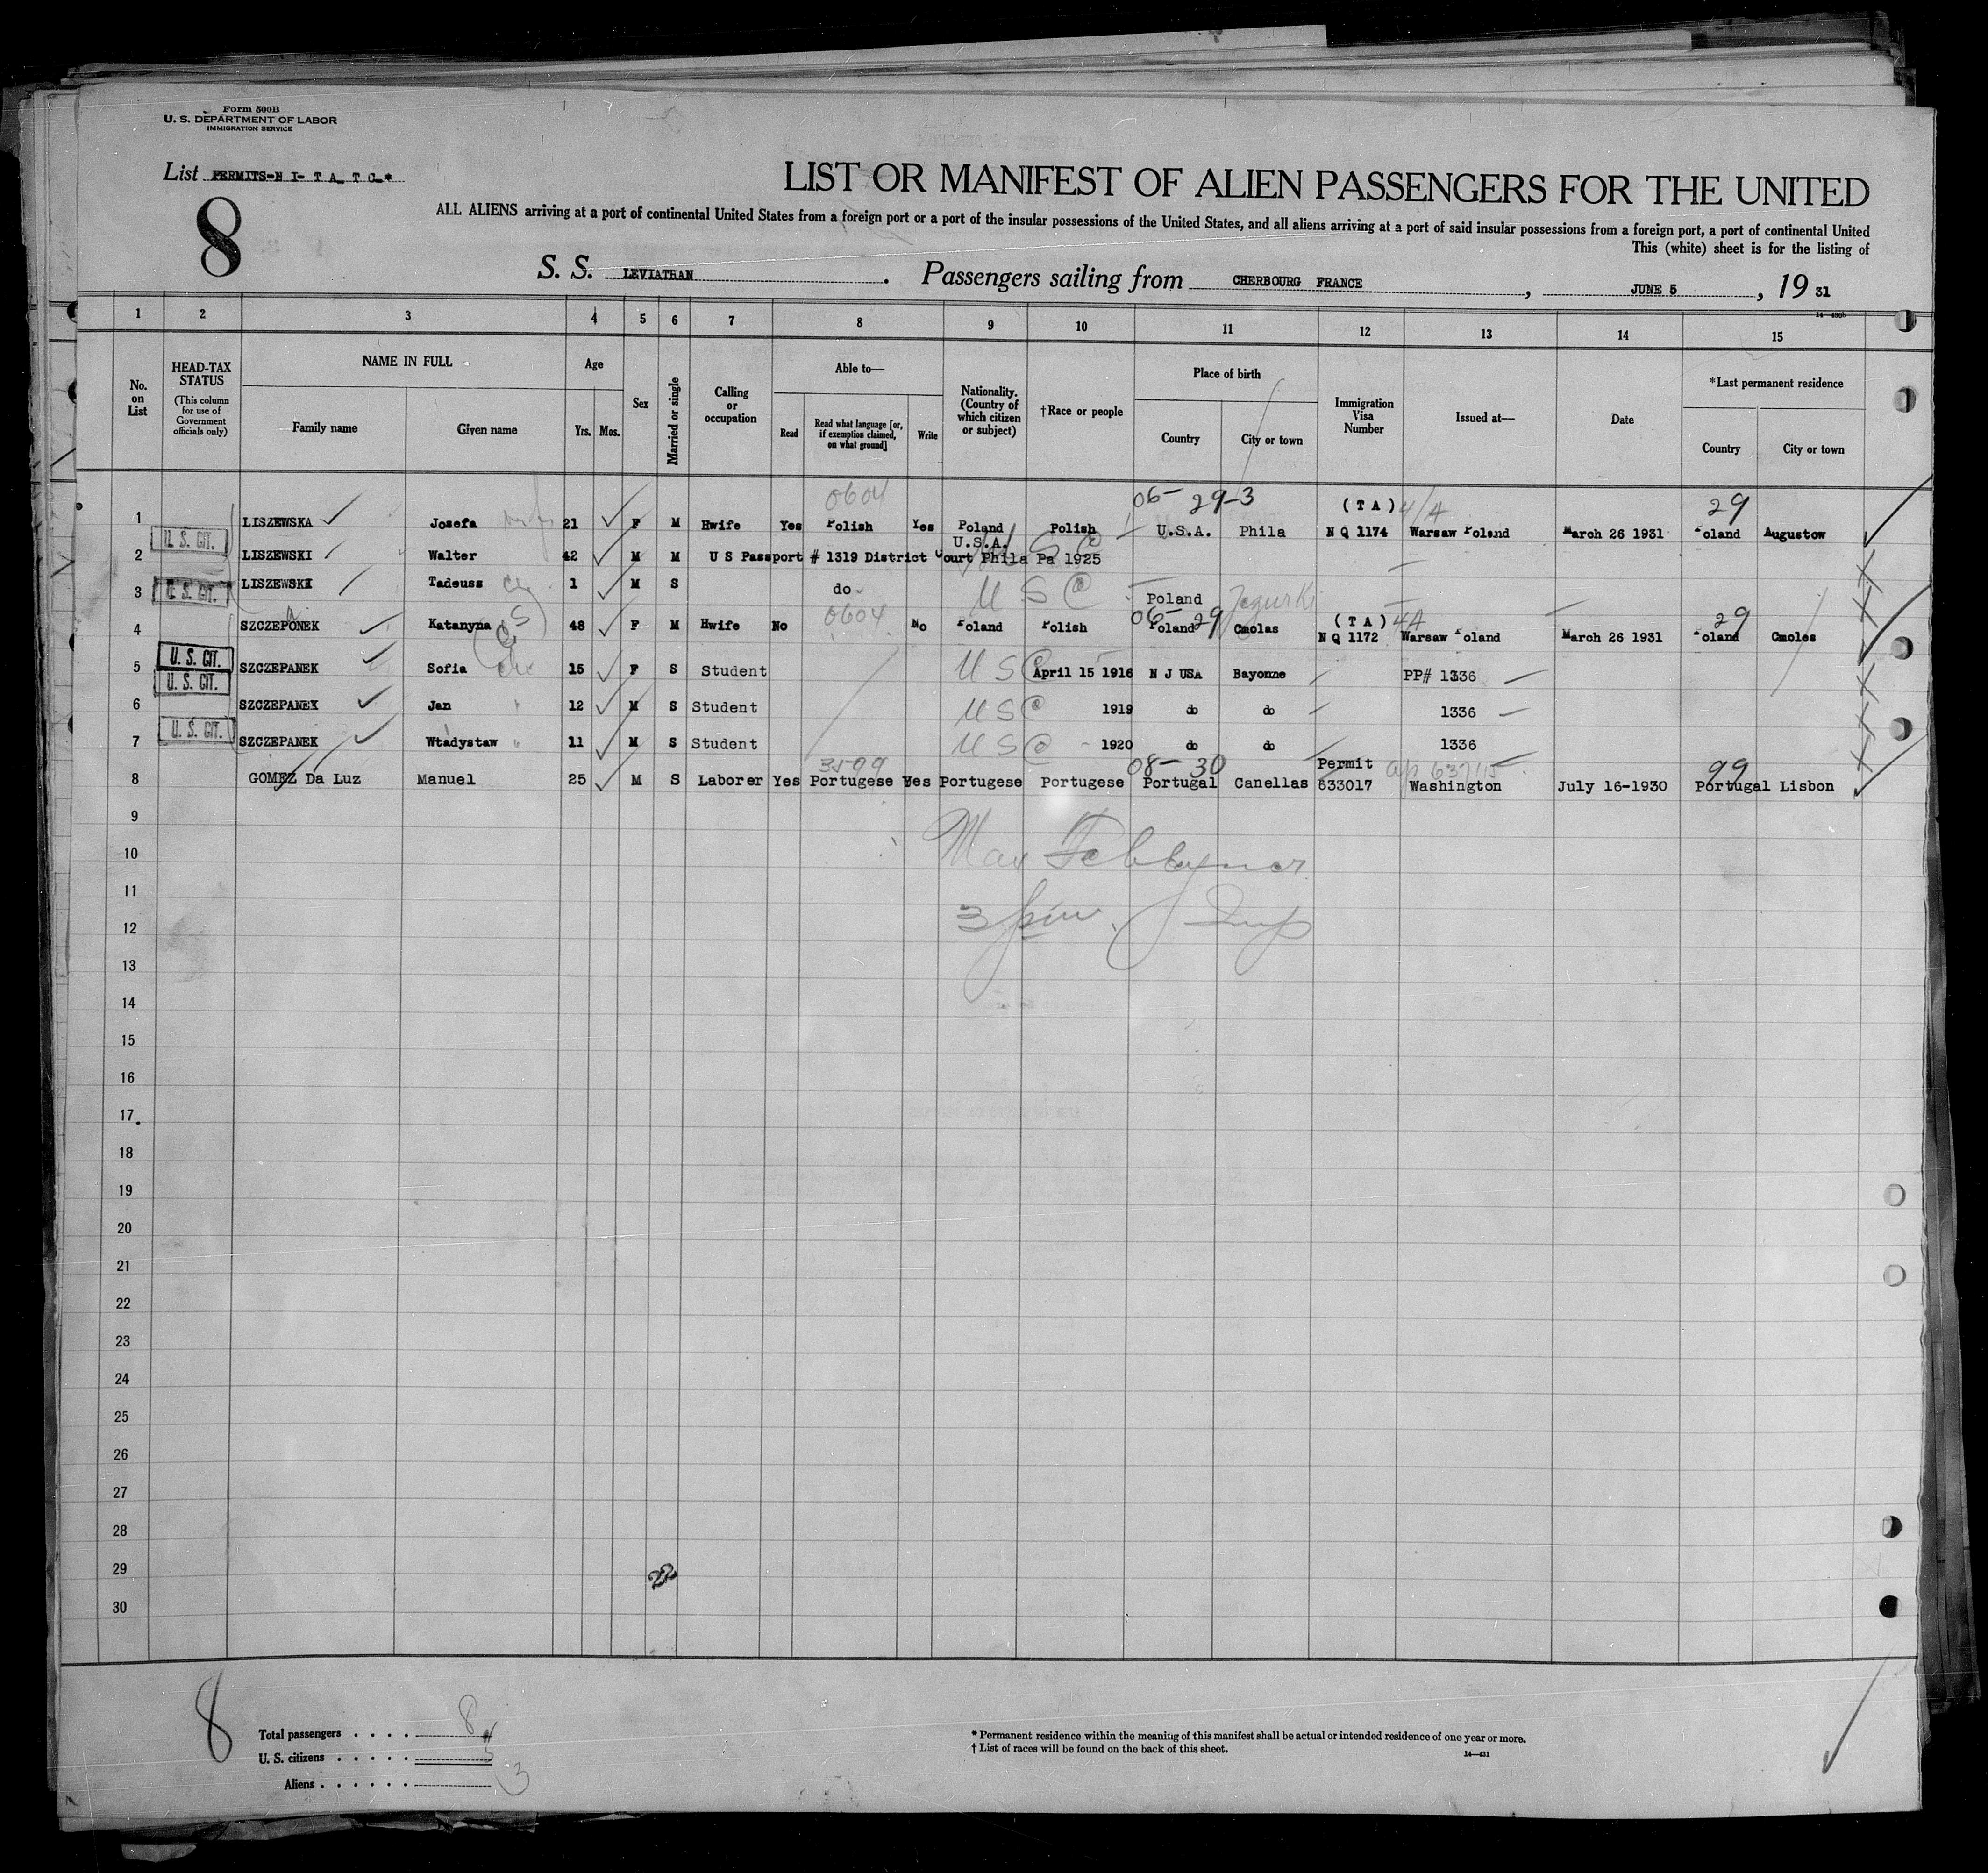 Form 500B
U. S. DEPARTMENT OF LABOR
IMMIGRATION SERVICE
List PERMITS-N I- T A_ T C_*
8
LIST OR MANIFEST OF ALIEN PASSENGERS FOR THE UNITED
ALL ALIENS arriving at a port of continental United States from a foreign port or a port of the insular possessions of the United States, and all aliens arriving at a port of said insular possessions from a foreign port, a port of continental United
This (white) sheet is for the listing of
S. S. LEVIATHAN. Passengers sailing from CHERBOURG FRANCE, JUNE 5, 19 31
1 2 3 4 5 6 7 8 9 10 11 12 13 14 15
No. on List
HEAD-TAX STATUS
(This column for use of Government officials only)
NAME IN FULL
Family name Given name
Age
Yrs. Mos.
Sex
Married or single
Calling or occupation
Able to—
Read
Read what language [or, if exemption claimed, on what ground]
Write
Nationality. (Country of which citizen or subject)
†Race or people
Place of birth
Country City or town
Immigration Visa Number
Issued at—
Date
*Last permanent residence
Country City or town
0604 06- 29-3 (TA) 4/4 29
1 LISZEWSKA Josefa 21 F M Hwife Yes Polish Yes Poland Polish U.S.A. Phila N Q 1174 Warsaw Poland March 26 1931 Poland Augustow
U. S. CIT.
U.S.A.
2 LISZEWSKI Walter 42 M M U S Passport # 1319 District Court Phila Pa 1925
U. S. CIT.
3 LISZEWSKI Tadeuss 1 M S do U S C Poland
0604 06- 29 (TA) 4A 29
4 SZCZEPONEK a Katanyna 48 F M Hwife No No Poland Polish Poland Cmolas N Q 1172 Warsaw Poland March 26 1931 Poland Cmoles
U. S. CIT.
5 SZCZEPANEK Sofia 15 F S Student U S C April 15 1916 N J USA Bayonne PP# 1336
U. S. CIT.
6 SZCZEPANEK Jan 12 M S Student U S C 1919 do do 1336
U. S. CIT.
7 SZCZEPANEK Wtadystaw 11 M S Student U S C 1920 do do 1336
3599 08- 30 Permit 99
8 GOMEZ Da Luz Manuel 25 M S Laborer Yes Portugese Yes Portugese Portugese Portugal Canellas 633017 Washington July 16-1930 Portugal Lisbon
9
10
11
12
13
14
15
16
17
18
19
20
21
22
23
24
25
26
27
28
29
30
8
Total passengers . . . . 8
U. S. citizens . . . . . 5
Aliens . . . . . . 3
* Permanent residence within the meaning of this manifest shall be actual or intended residence of one year or more.
† List of races will be found on the back of this sheet.
14—431